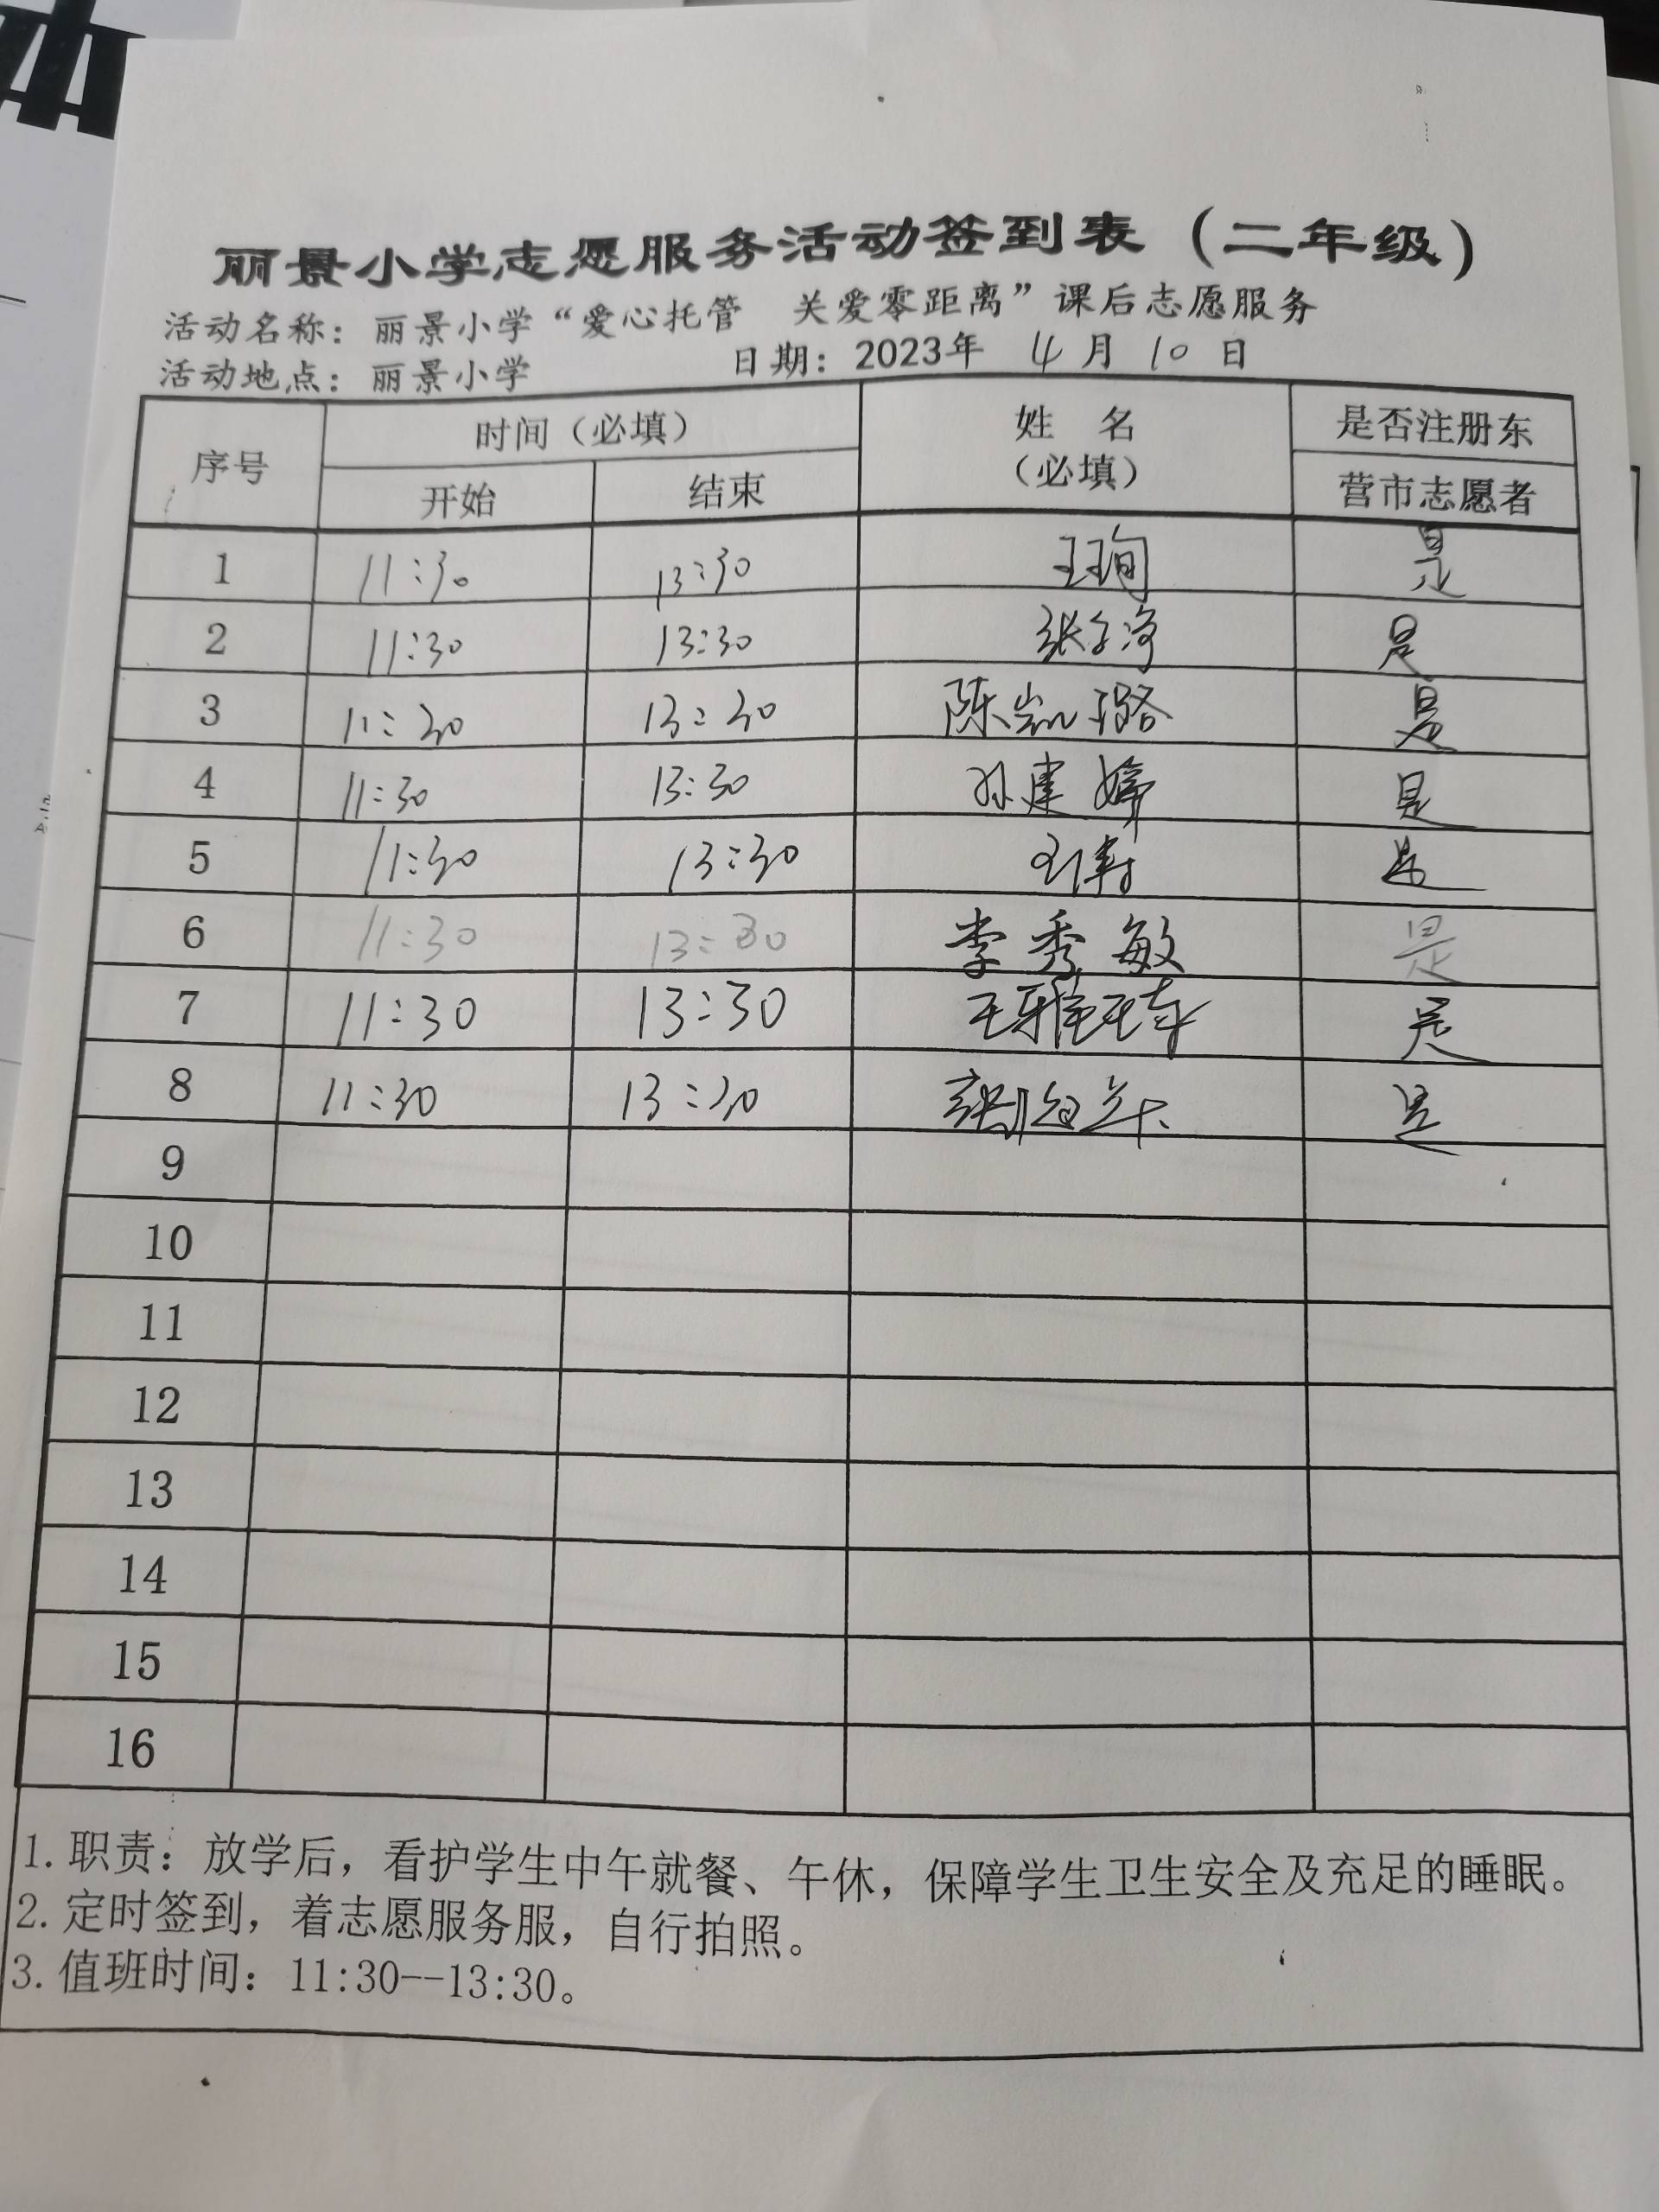 丽景小学志愿服务活动签到表（二年级）
活动名称：丽景小学“爱心托管 关爱零距离”课后志愿服务
活动地点：丽景小学 日期：2023年 4月 10日
序号 时间（必填） 姓 名（必填） 是否注册东
开始 结束 营市志愿者
1 11:30 13:30 王珣 是
2 11:30 13:30 是
3 11:30 13:30 陈凯璐 是
4 11:30 13:30 孙建婷 是
5 11:30 13:30 是
6 11:30 13:30 李秀敏 是
7 11:30 13:30 王雅琦 是
8 11:30 13:30 是
9
10
11
12
13
14
15
16
1.职责：放学后，看护学生中午就餐、午休，保障学生卫生安全及充足的睡眠。
2.定时签到，着志愿服务服，自行拍照。
3.值班时间：11:30--13:30。